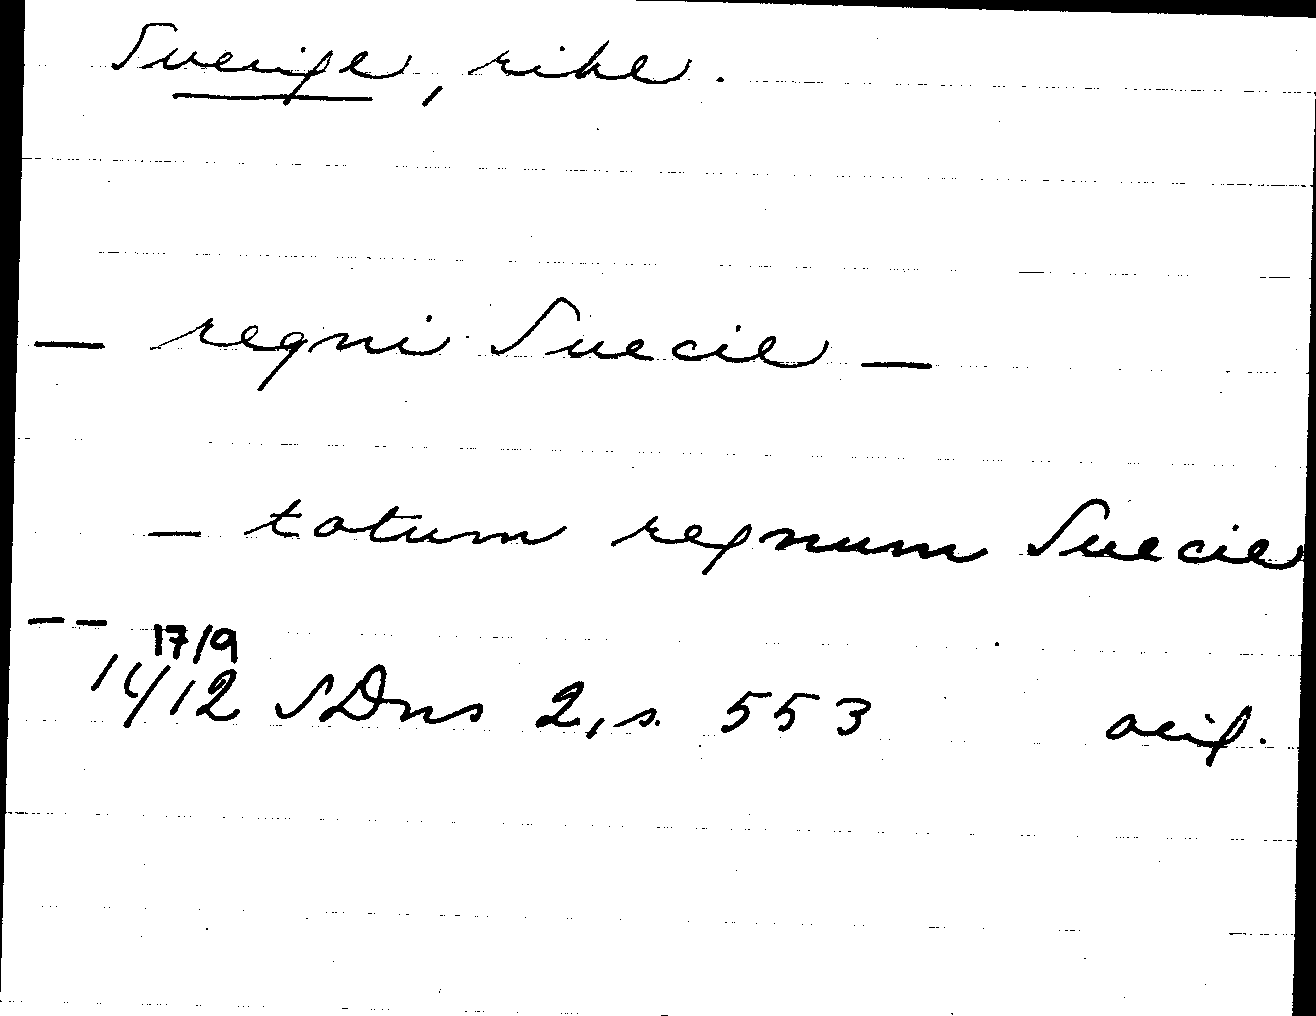 Sverige, rike.
— regni Suecie —
— totum regnum Suecie
— — 17/9
1412 SDns 2, s. 553 orig.